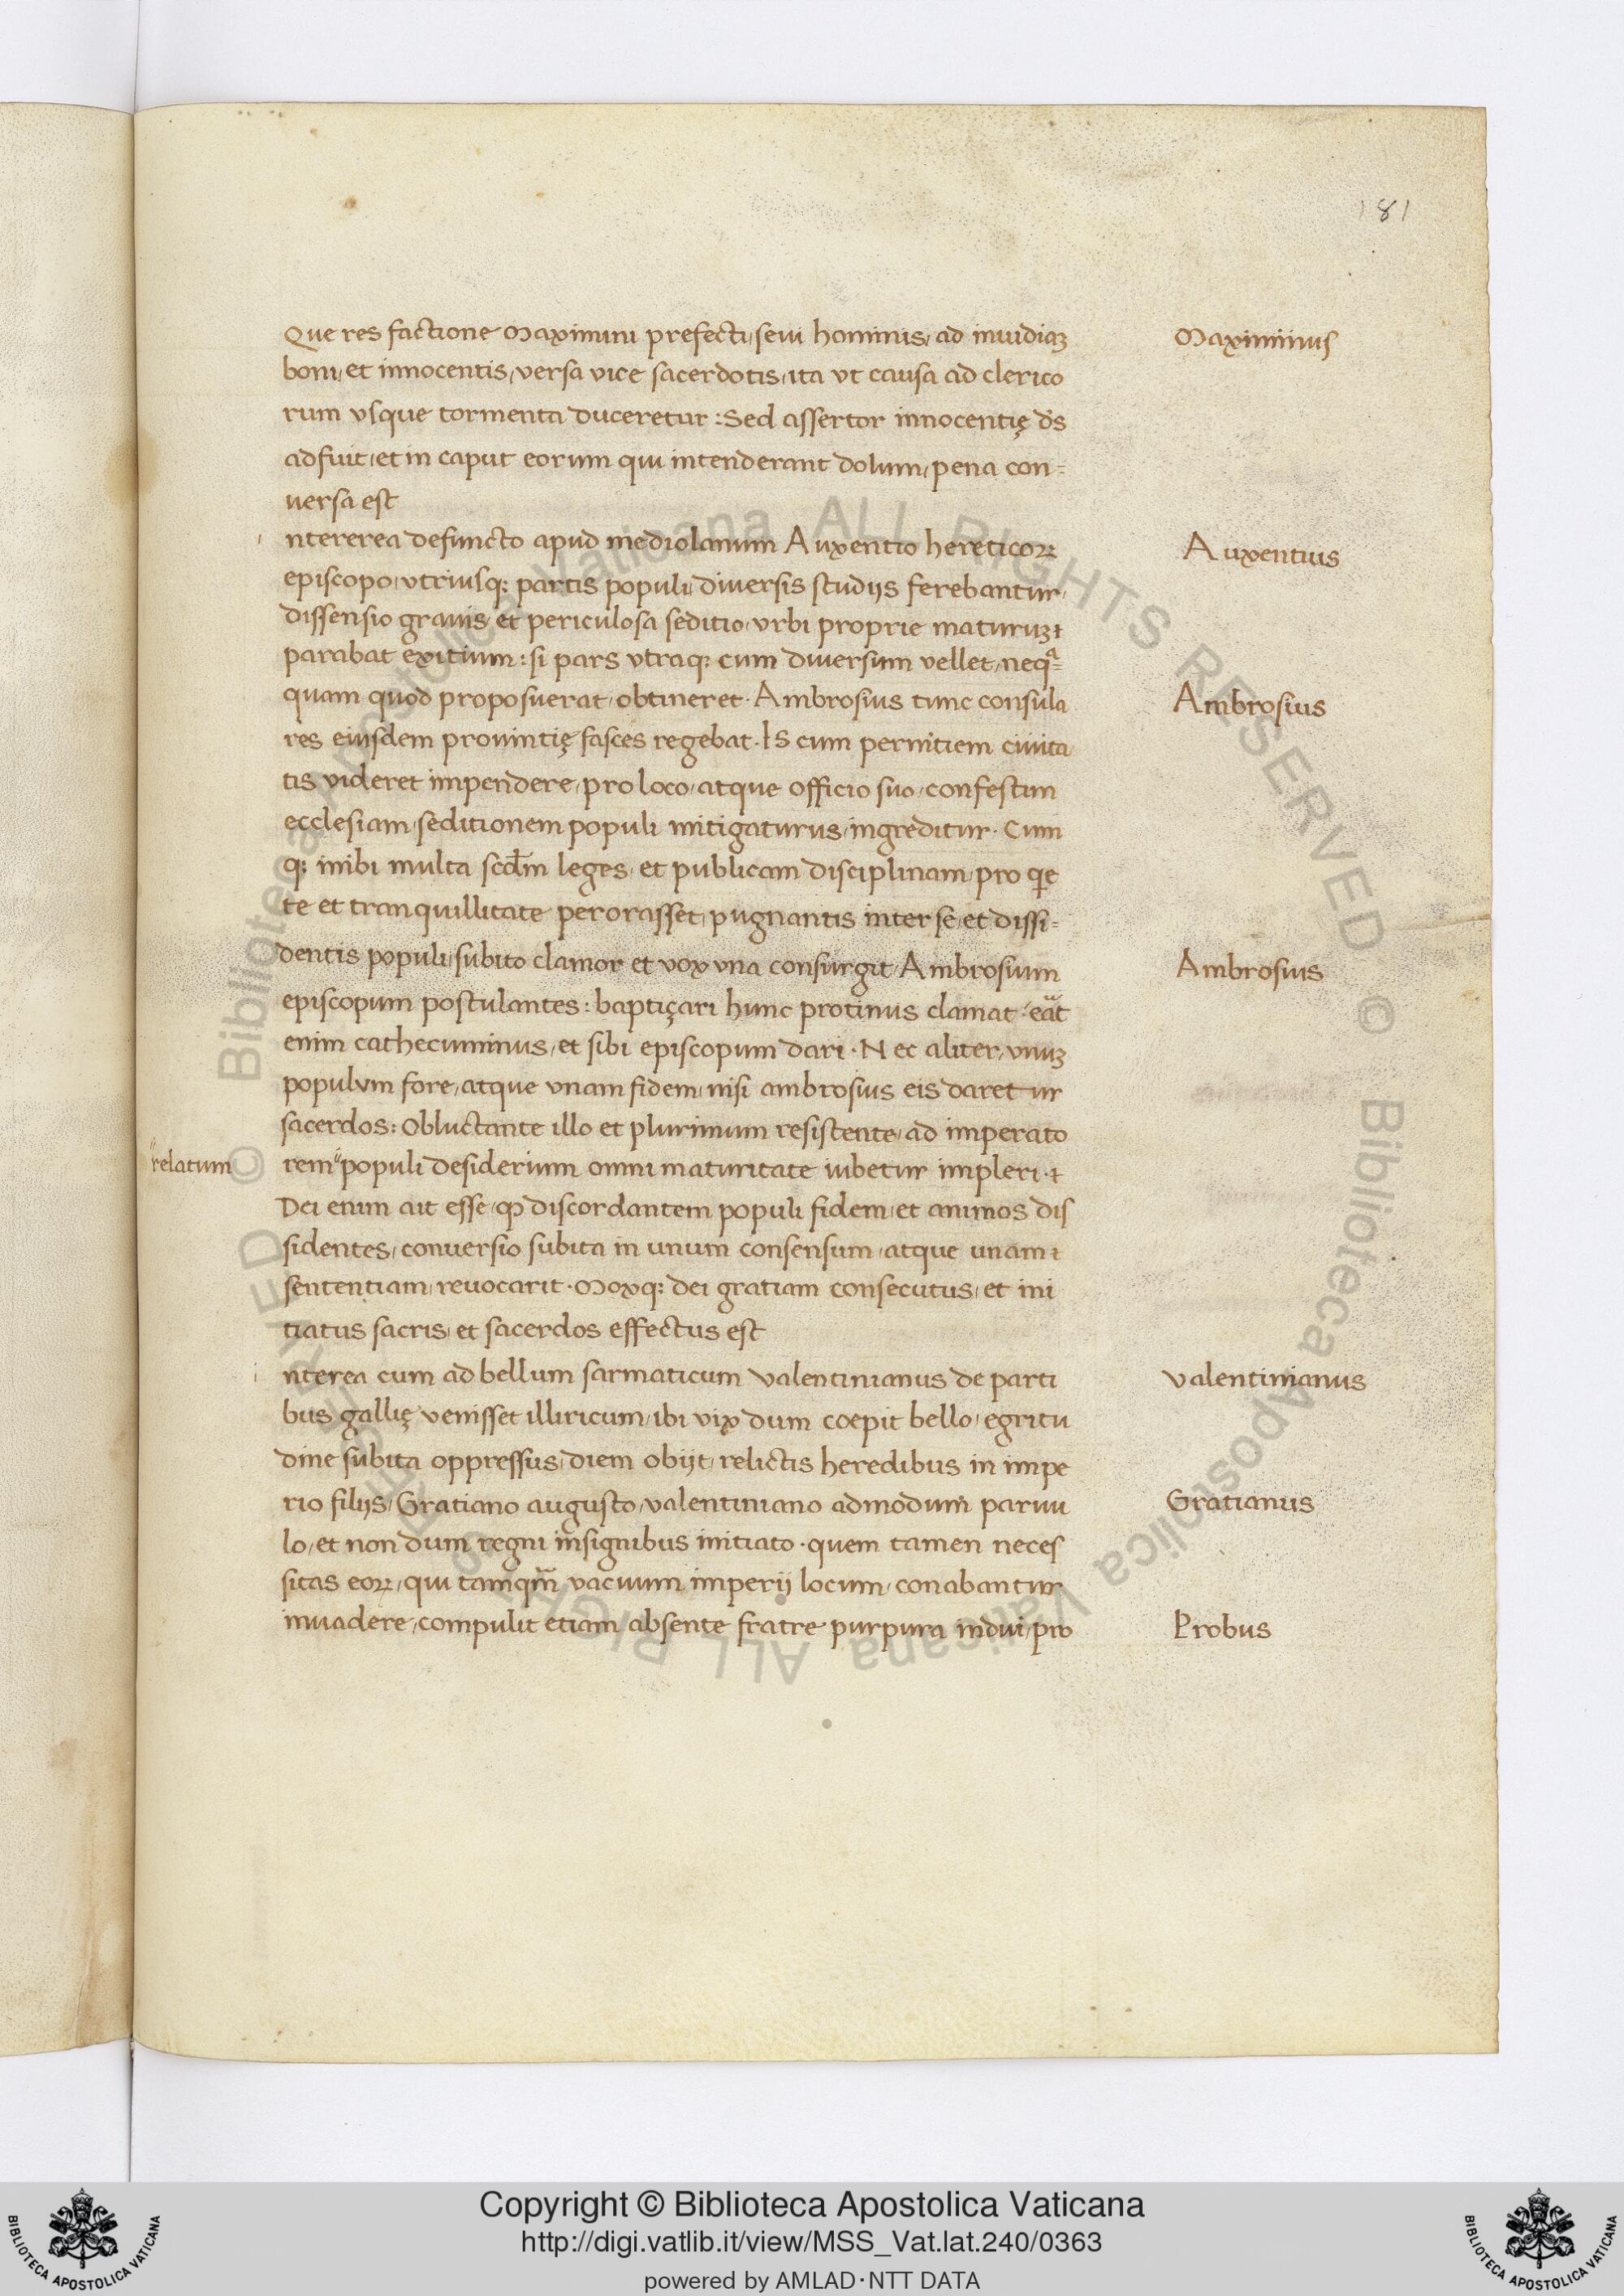 181
Que res factione Maximini prefecti, seui hominis, ad inuidiaʒ
Maximinus
boni, et innocentis, versa vice sacerdotis, ita vt causa ad clerico
rum vsque tormenta duceretur : Sed assertor innocentię dn̄s
adfuit, et in caput eorum qui intenderant dolum, pena con=
uersa est
i ntererea defuncto apud mediolanum Auxentio hereticoꝝ
Auxentius
episcopo, vtriusqꝫ partis populi, diuersis studijs ferebantur,
dissensio grauis, et periculosa seditio, vrbi proprie maturuʒ
parabat exitium : si pars vtraqꝫ cum diuersum vellet, neqᵃ=
quam quod proposuerat, obtineret. Ambrosius tunc consula
Ambrosius
res eiusdem prouintię fasces regebat. IS cum pernitiem ciuita
tis videret impendere, pro loco, atque officio suo, confestim
ecclesiam, seditionem populi mitigaturus, ingreditur. Cum
qꝫ inibi multa scd̄m leges, et publicam disciplinam, pro qͥe
te et tranquillitate perorasset, pugnantis inter se, et dissi=
dentis populi, subito clamor et vox vna consurgit, Ambrosium
Ambrosius
episcopum postulantes : baptiçari hunc protinus clamat, eāt
enim cathecuminus, et sibi episcopum dari. Nec aliter, vnuʒ
populum fore, atque vnam fidem, nisi ambrosius eis daretur
sacerdos : Obluctante illo et plurimum resistente, ad imperato
relatum
rem" populi desiderium omni maturitate iubetur impleri.
Dei enim ait esse, ꝙ discordantem populi fidem, et animos dis
sidentes, conuersio subita in unum consensum, atque unam
sententiam, reuocarit. Moxqꝫ dei gratiam consecutus, et ini
tiatus sacris, et sacerdos effectus est
i nterea cum ad bellum sarmaticum valentinianus de parti
valentinianus
bus gallię venisset illiricum, ibi vix dum coepit bello, egritu
dine subita oppressus, diem obijt, relictis heredibus in impe
rio filijs, Gratiano augusto, valentiniano admodum paruu
Gratianus
lo, et non dum regni insignibus initiato. quem tamen neces
sitas eoꝝ, qui tamqm̄ vacuum imperij locum, conabantur
inuadere, compulit etiam absente fratre purpura indui, pro
Probus
Copyright © Biblioteca Apostolica Vaticana
http://digi.vatlib.it/view/MSS_Vat.lat.240/0363
powered by AMLAD·NTT DATA
BIBLIOTECA APOSTOLICA VATICANA
BIBLIOTECA APOSTOLICA VATICANA
© Biblioteca Apostolica Vaticana ALL RIGHTS RESERVED © Biblioteca Apostolica Vaticana ALL RIGHTS RESERVED